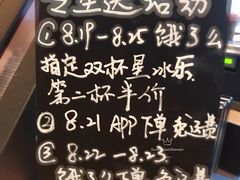 ①8.19-8.25 饿了么
指定双杯星冰乐
第二杯半价
②8.21 APP下单免运费
③8.22-8.23
饿了么下单免运费